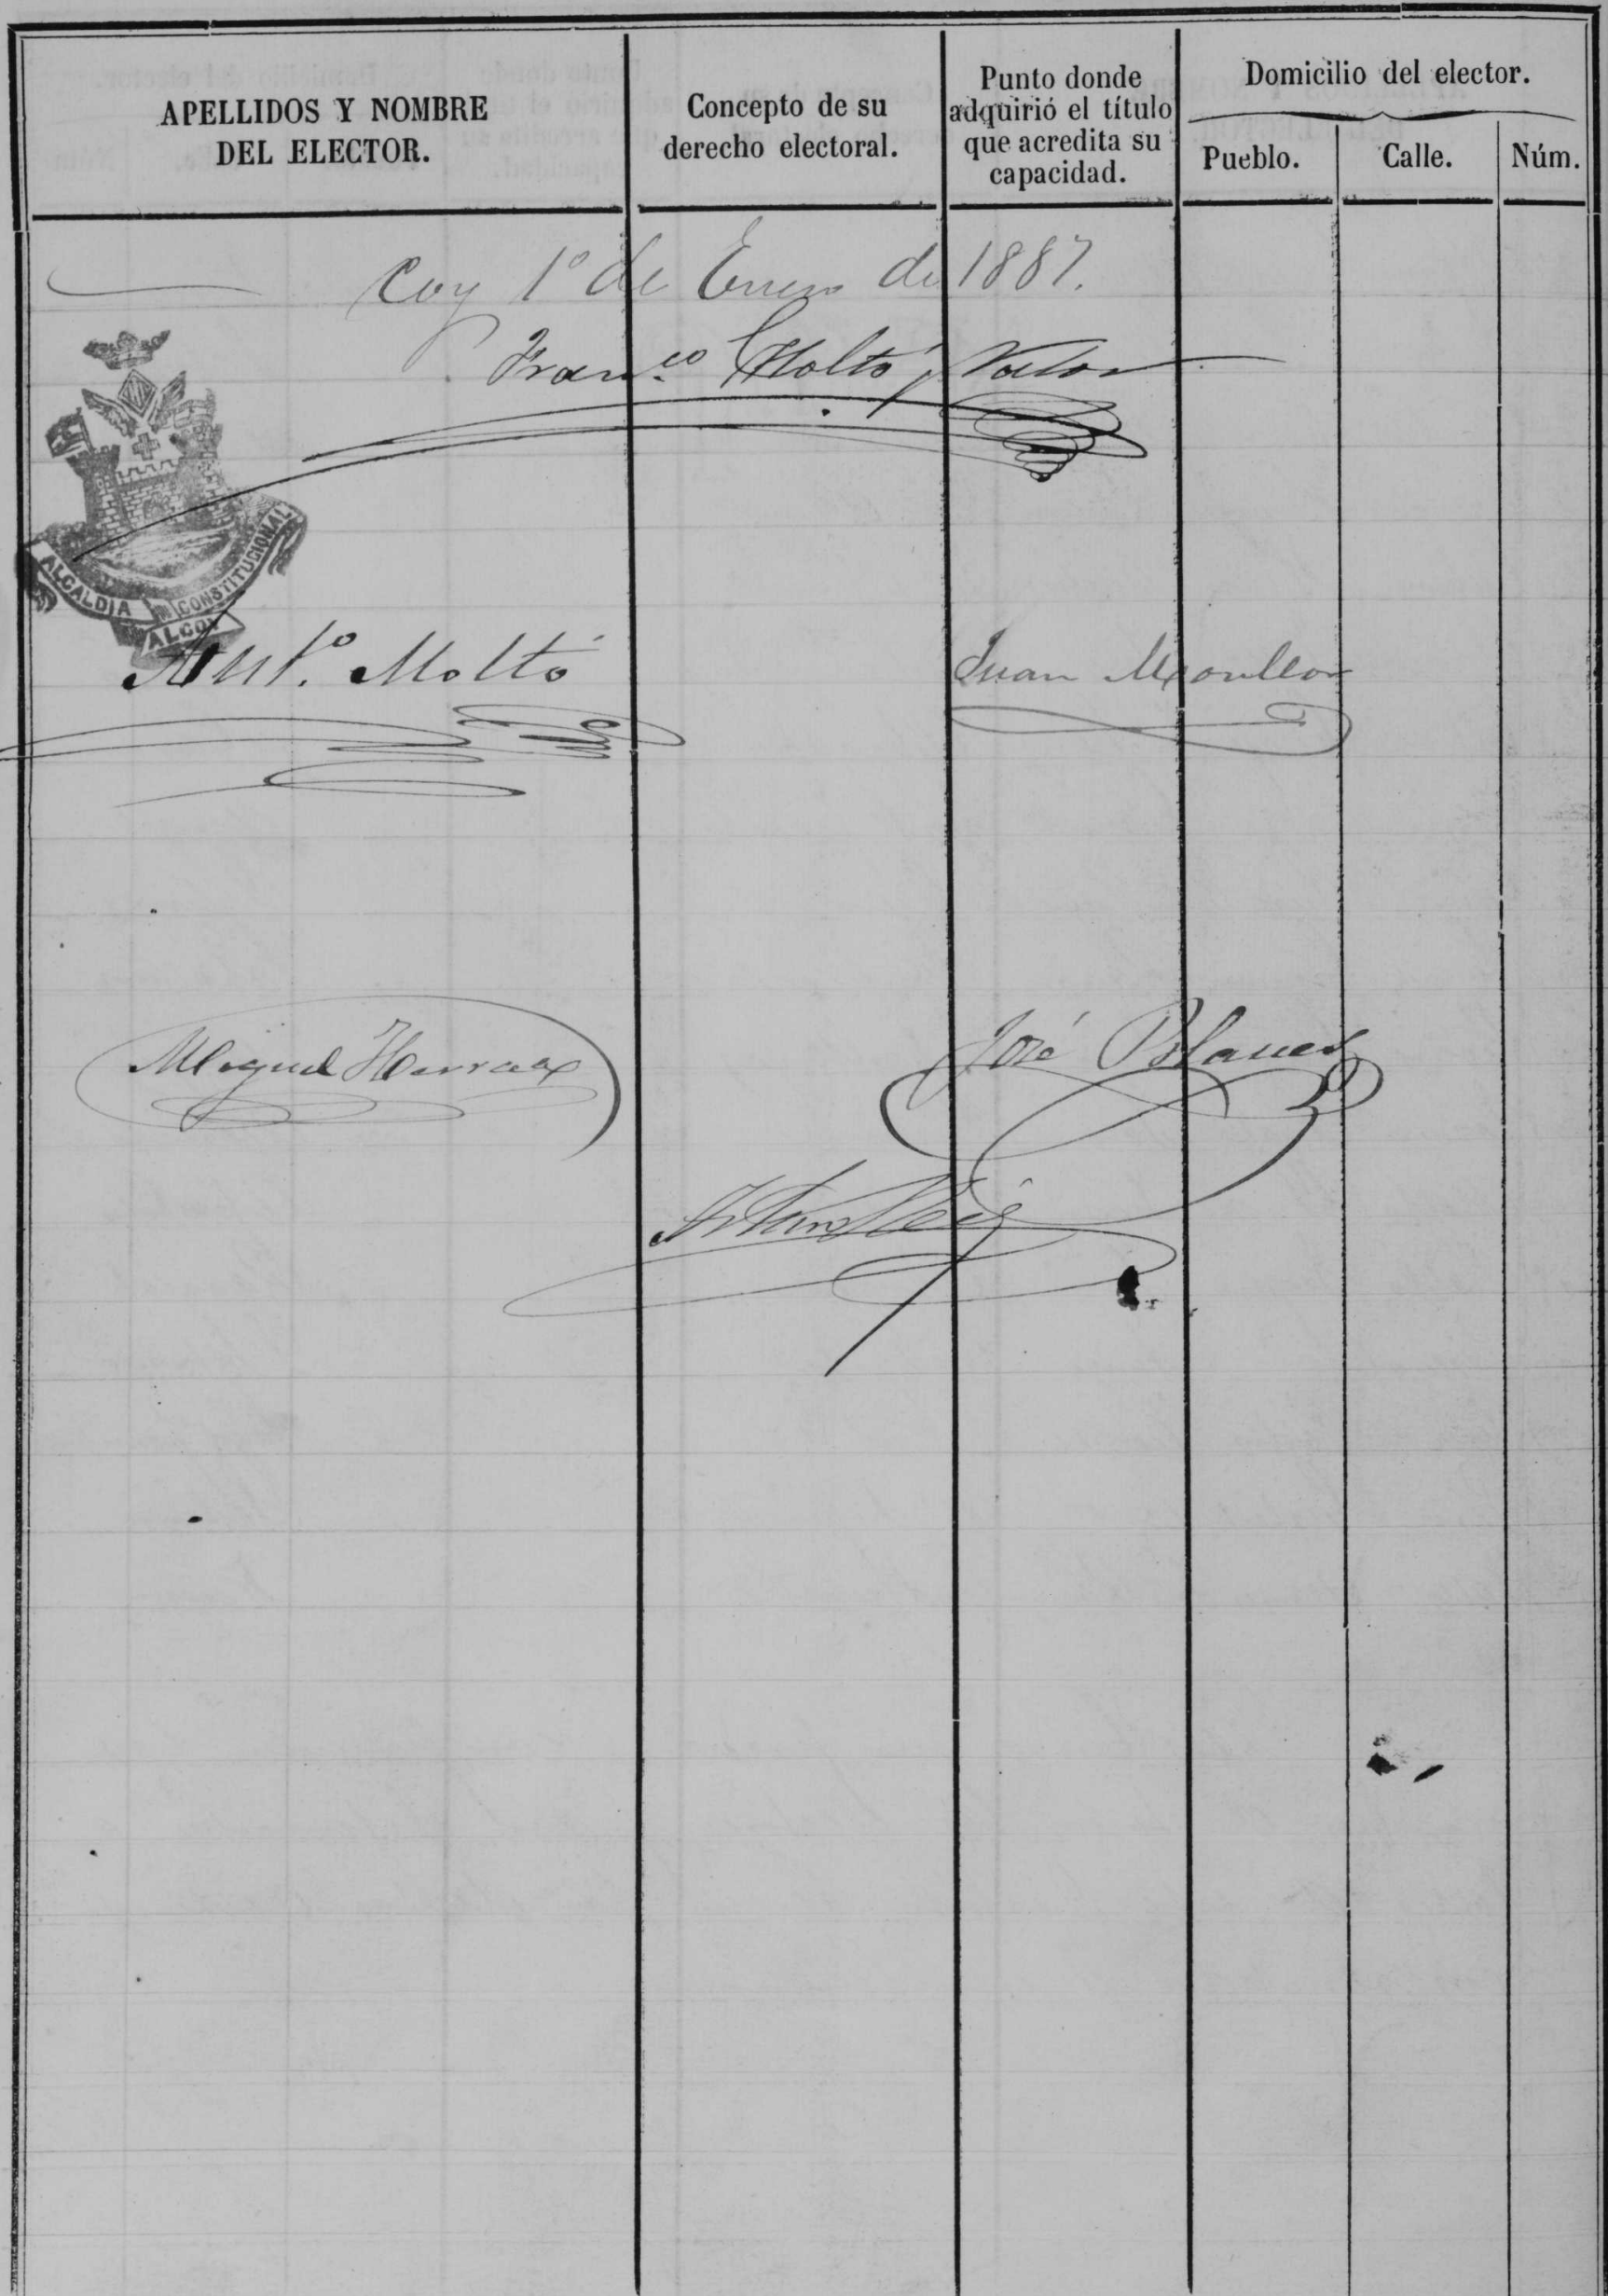 APELLIDOS Y NOMBRE
DEL ELECTOR.
Concepto de su
derecho electoral.
Punto donde
adquirió el título
que acredita su
capacidad.
Domicilio del elector.
Pueblo.
Calle.
Núm.
coy 1º de Enero de 1887.
Fran.co Moltó y Valor
ALCALDIA CONSTITUCIONAL
ALCOY
Ant.º Moltó
Juan Moullor
Miguel
José Blanes
Arturo